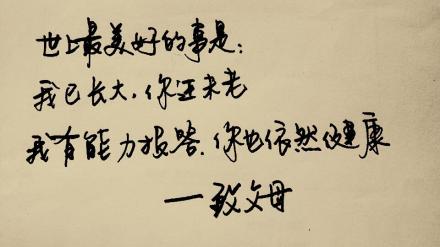 世上最美好的事是：
我已长大，你还未老
我有能力报答，你也依然健康
——致父母